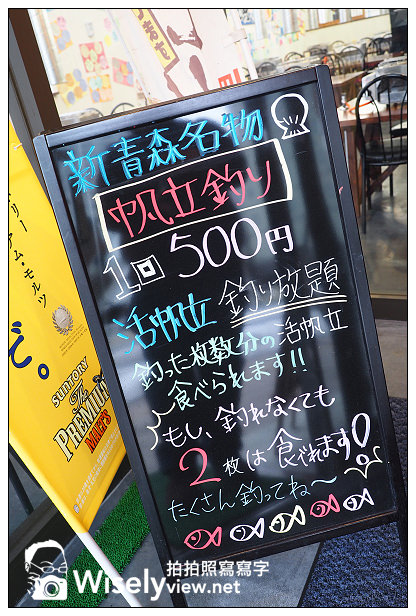 新青森名物
帆立釣り
1回500円
活帆立 釣り放題
釣った枚数分の活帆立
食べられます!!
もし、釣れなくても
2枚は食べれます!
たくさん釣ってね〜
で。
SUNTORY
The
PREMIUM
MALT'S
拍拍照寫寫字
Wiselyview.net